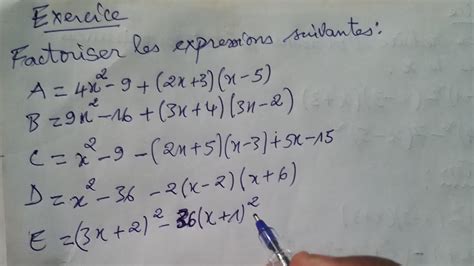 Exercice
Factoriser les expressions suivantes:
A = 4x² - 9 + (2x+3)(x-5)
B = 9x² - 16 + (3x+4)(3x-2)
C = x² - 9 - (2x+5)(x-3) + 5x - 15
D = x² - 36 - 2(x-2)(x+6)
E = (3x+2)² - 36(x+1)²